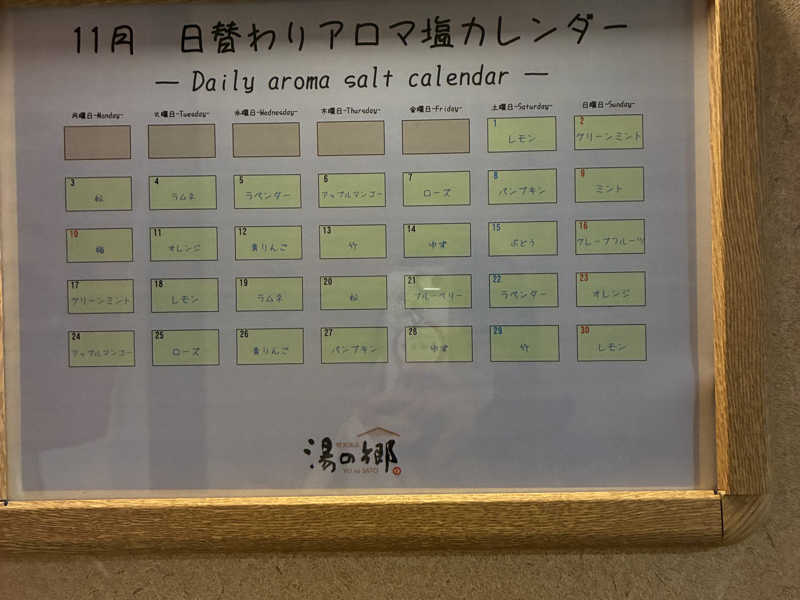 11月 日替わりアロマ塩カレンダー
— Daily aroma salt calendar —
月曜日-Monday- 火曜日-Tuesday- 水曜日-Wednesday- 木曜日-Thursday- 金曜日-Friday- 土曜日-Saturday- 日曜日-Sunday-
1 レモン 2 グリーンミント
3 松 4 ラムネ 5 ラベンダー 6 アップルマンゴー 7 ローズ 8 パンプキン 9 ミント
10 梅 11 オレンジ 12 青りんご 13 竹 14 ゆず 15 ぶどう 16 グレープフルーツ
17 グリーンミント 18 レモン 19 ラムネ 20 松 21 ブルーベリー 22 ラベンダー 23 オレンジ
24 アップルマンゴー 25 ローズ 26 青りんご 27 パンプキン 28 ゆず 29 竹 30 レモン
湯の郷
YU no SATO